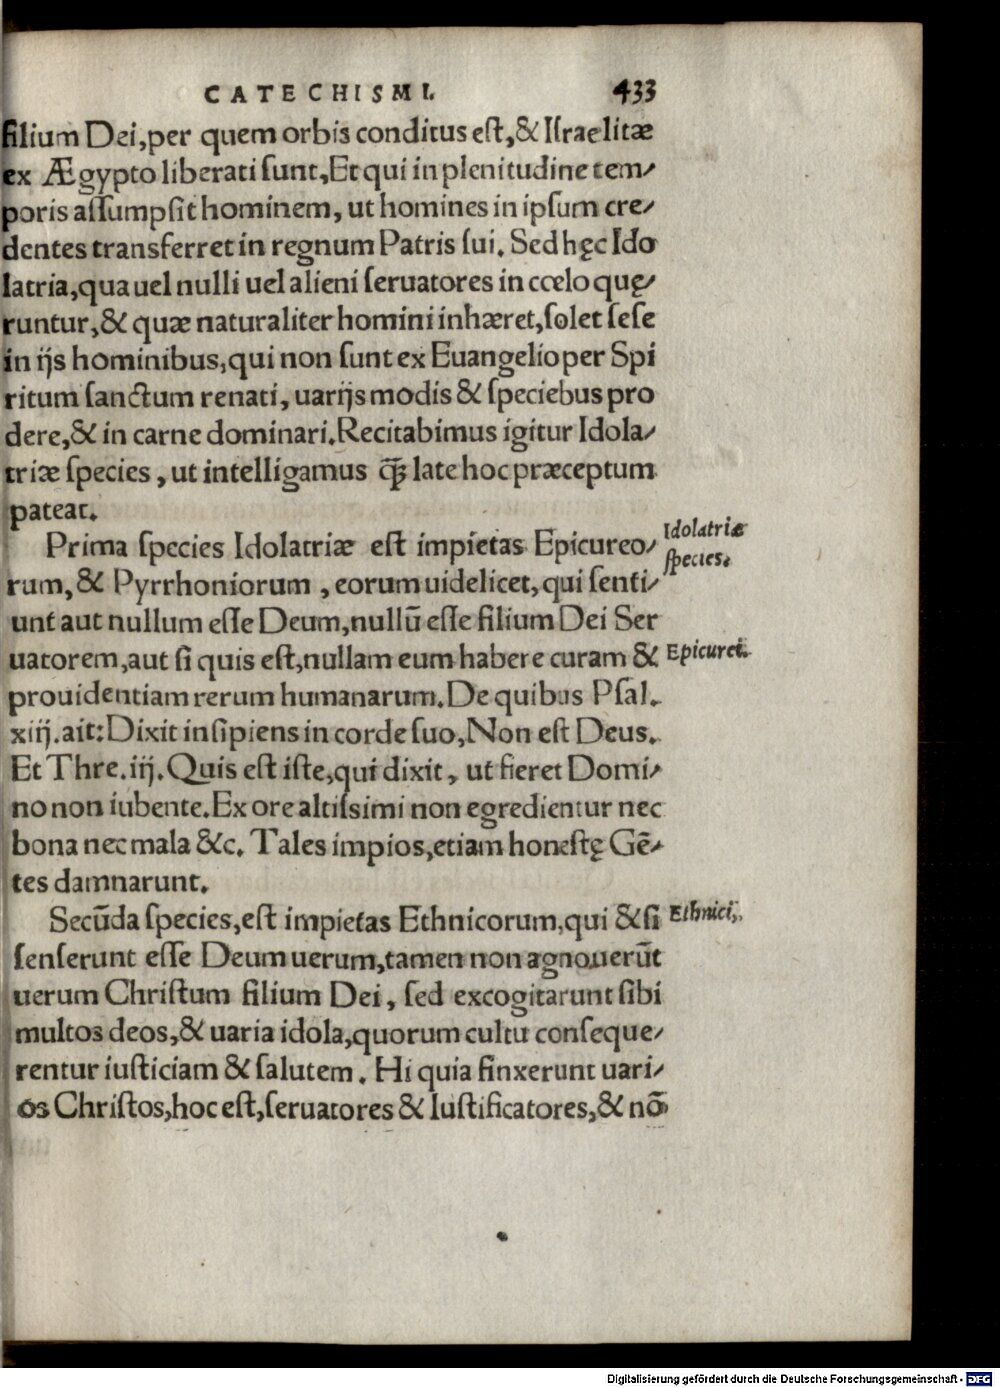 CATECHISMI. 433
filium Dei,per quem orbis conditus eſt,& Iſraelitæ
ex Ægypto liberati ſunt,Et qui in plenitudine tem/
poris aſſumpſit hominem, ut homines in ipſum cre/
dentes transferret in regnum Patris ſui. Sed hęc Ido
latria,qua uel nulli uel alieni ſeruatores in cœlo quę/
runtur,& quæ naturaliter homini inhæret,ſolet ſeſe
in ijs hominibus,qui non ſunt ex Euangelio per Spi
ritum ſanctum renati, uarijs modis & ſpeciebus pro
dere,& in carne dominari.Recitabimus igitur Idola/
triæ ſpecies, ut intelligamus ꝙ̃ late hoc præceptum
pateat.
Prima ſpecies Idolatriæ eſt impietas Epicureo/
Idolatriæ
ſpecies.
rum,& Pyrrhoniorum, eorum uidelicet, qui ſenti/
unt aut nullum eſſe Deum,nullū eſſe filium Dei Ser
uatorem,aut ſi quis eſt,nullam eum habere curam &
Epicurei.
prouidentiam rerum humanarum.De quibus Pſal.
xiij.ait:Dixit inſipiens in corde ſuo,Non eſt Deus.
Et Thre.iij.Quis eſt iſte,qui dixit, ut fieret Domi/
no non iubente.Ex ore altiſsimi non egredientur nec
bona nec mala &c. Tales impios,etiam honeſtę Gē/
tes damnarunt.
Secūda ſpecies,eſt impietas Ethnicorum,qui & ſi
Ethnici,
ſenſerunt eſſe Deum uerum,tamen non agnouerūt
uerum Chriſtum filium Dei, ſed excogitarunt ſibi
multos deos,& uaria idola,quorum cultu conſeque/
rentur iuſticiam & ſalutem. Hi quia finxerunt uari/
os Chriſtos,hoc eſt,ſeruatores & Iuſtificatores,& nō
Digitalisierung gefördert durch die Deutsche Forschungsgemeinschaft - DFG